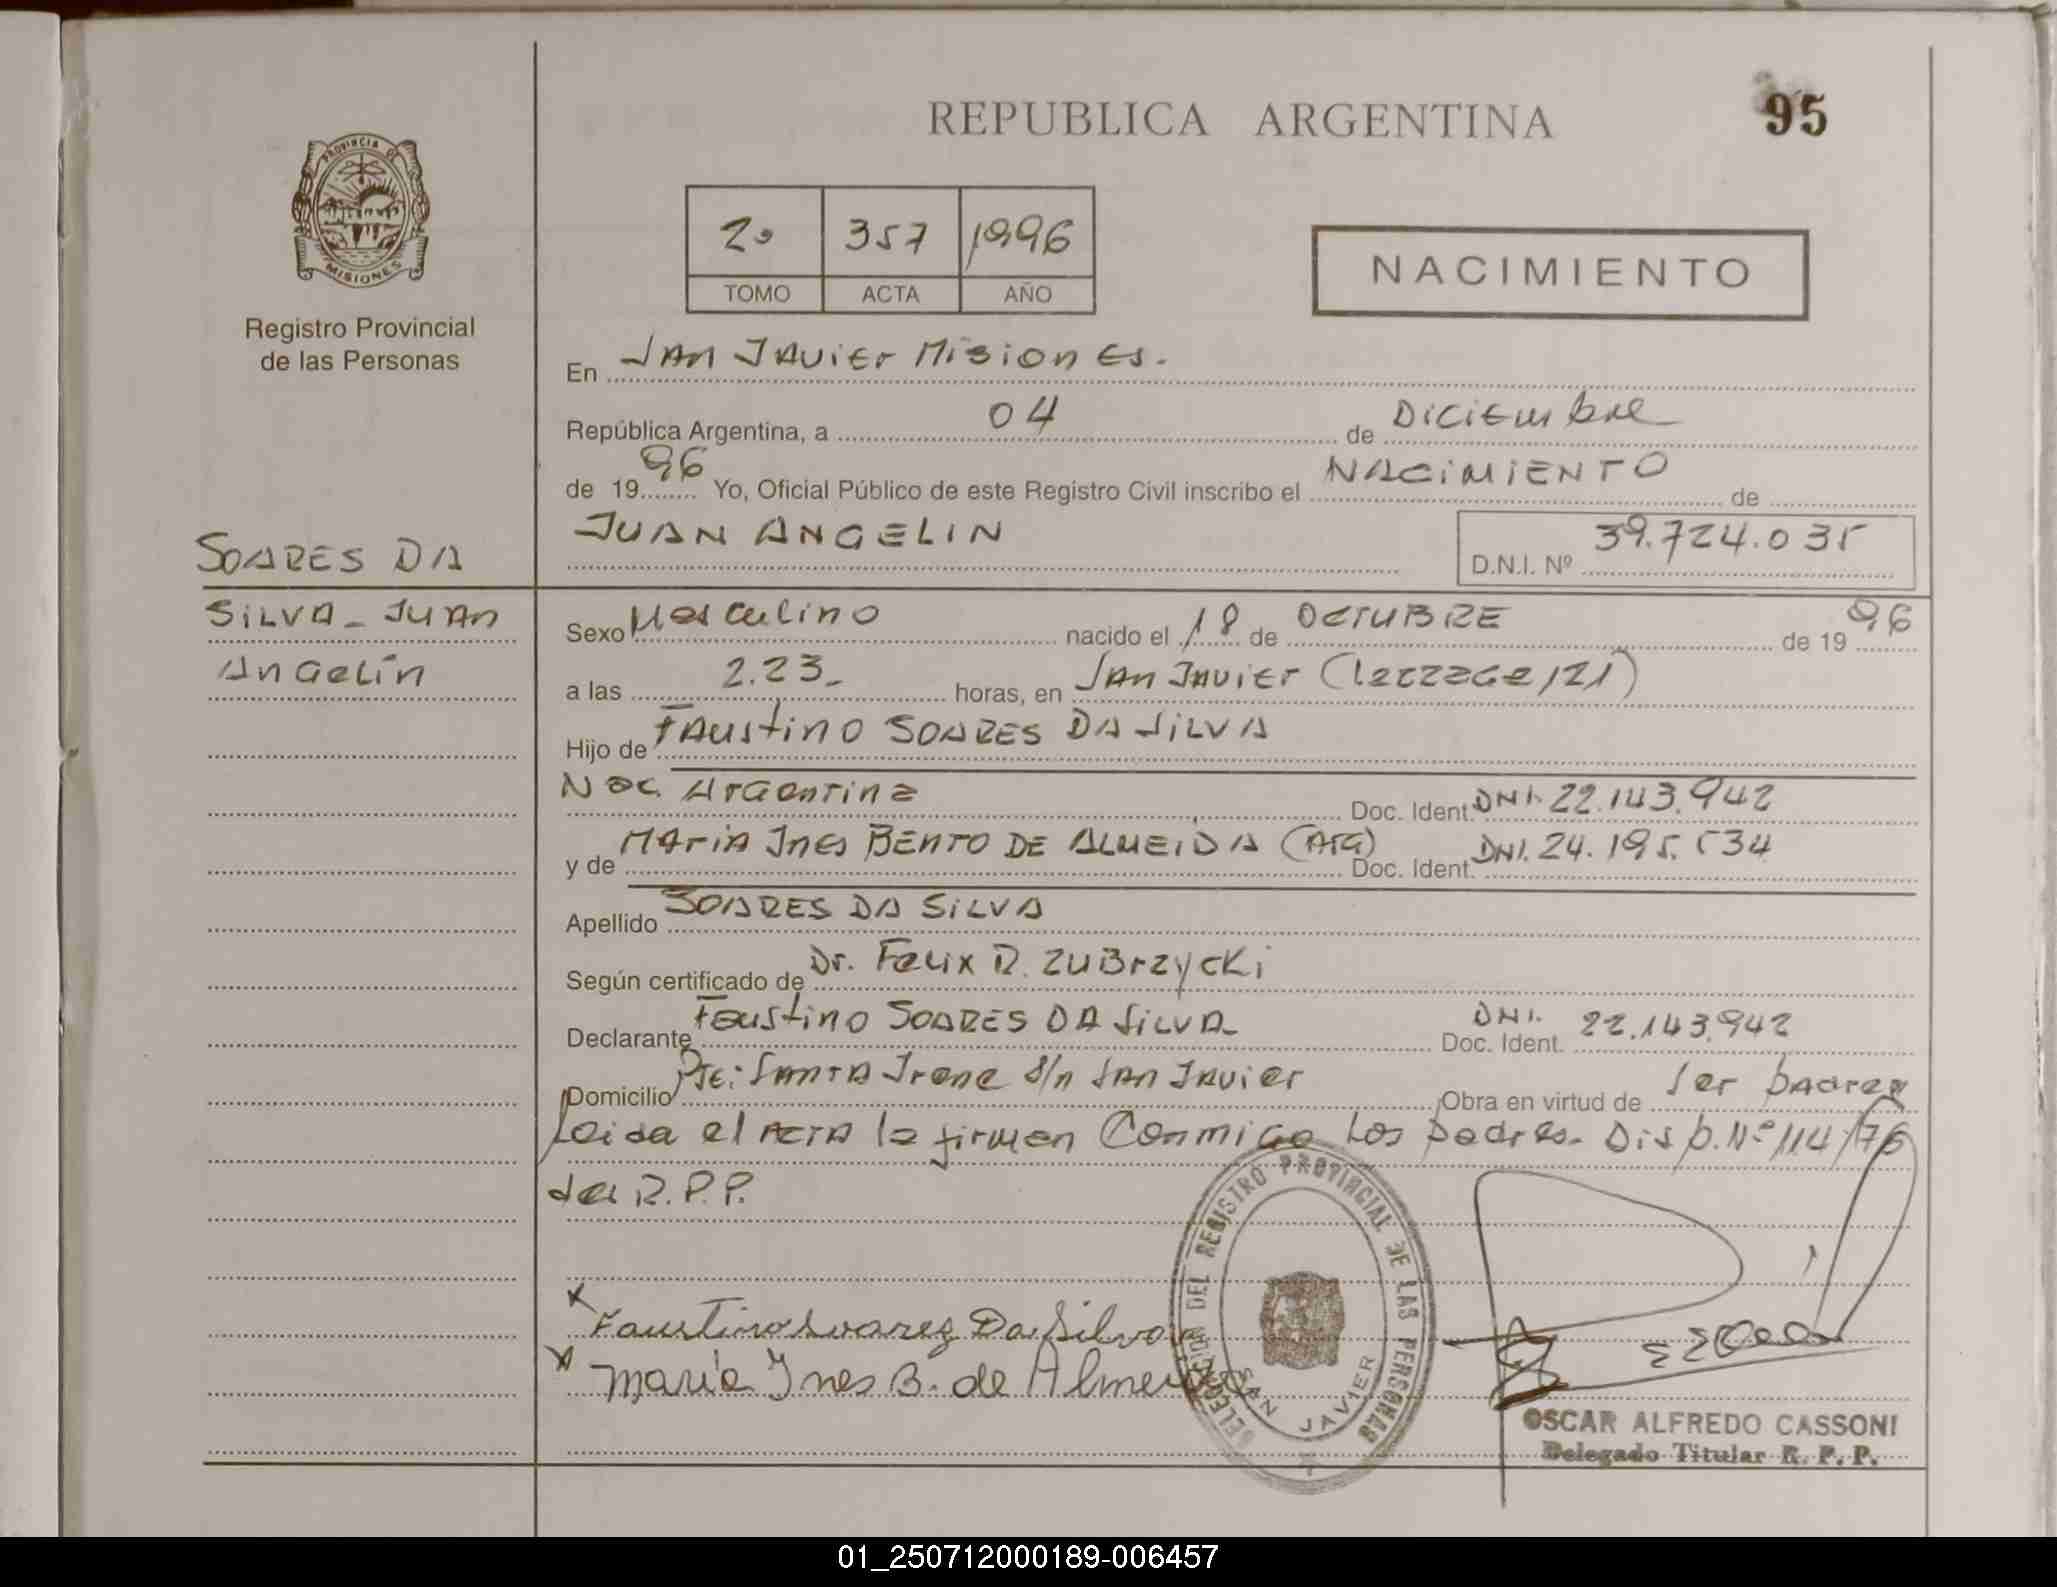 REPUBLICA ARGENTINA
95
PROVINCIA DE
MISIONES
Registro Provincial
de las Personas
2º 357 1996
TOMO ACTA AÑO
NACIMIENTO
En San Javier Misiones.
República Argentina, a 04 de Diciembre
de 1996 Yo, Oficial Público de este Registro Civil inscribo el NACIMIENTO de
JUAN ANGELIN
D.N.I. Nº 39.724.035
SOARES DA
SILVA - JUAN
Angelín
Sexo Masculino nacido el 18 de OCTUBRE de 1996
a las 2.23_ horas, en San Javier (
Hijo de Faustino SOARES DA SILVA
Nac. Argentina Doc. Ident. DNI. 22.143.942
y de Maria Ines BENTO DE ALMEIDA (Arg) Doc. Ident. DNI. 24.195.534
Apellido SOARES DA SILVA
Según certificado de Dr. Felix R. ZUBrzycki
Declarante Faustino SOARES DA SILVA_ Doc. Ident. DNI. 22.143.942
Domicilio Pje: Santa Irene s/n San Javier Obra en virtud de ser padres
Leida el acta la firman Conmigo Los padres. Disp. Nº 114/76
del R.P.P.
x Faustino Soarez Da Silva
x Maria Ines B. de Almeida
DELEGACION DEL REGISTRO PROVINCIAL DE LAS PERSONAS
SAN JAVIER
OSCAR ALFREDO CASSONI
Delegado Titular R. P. P.
01_250712000189-006457